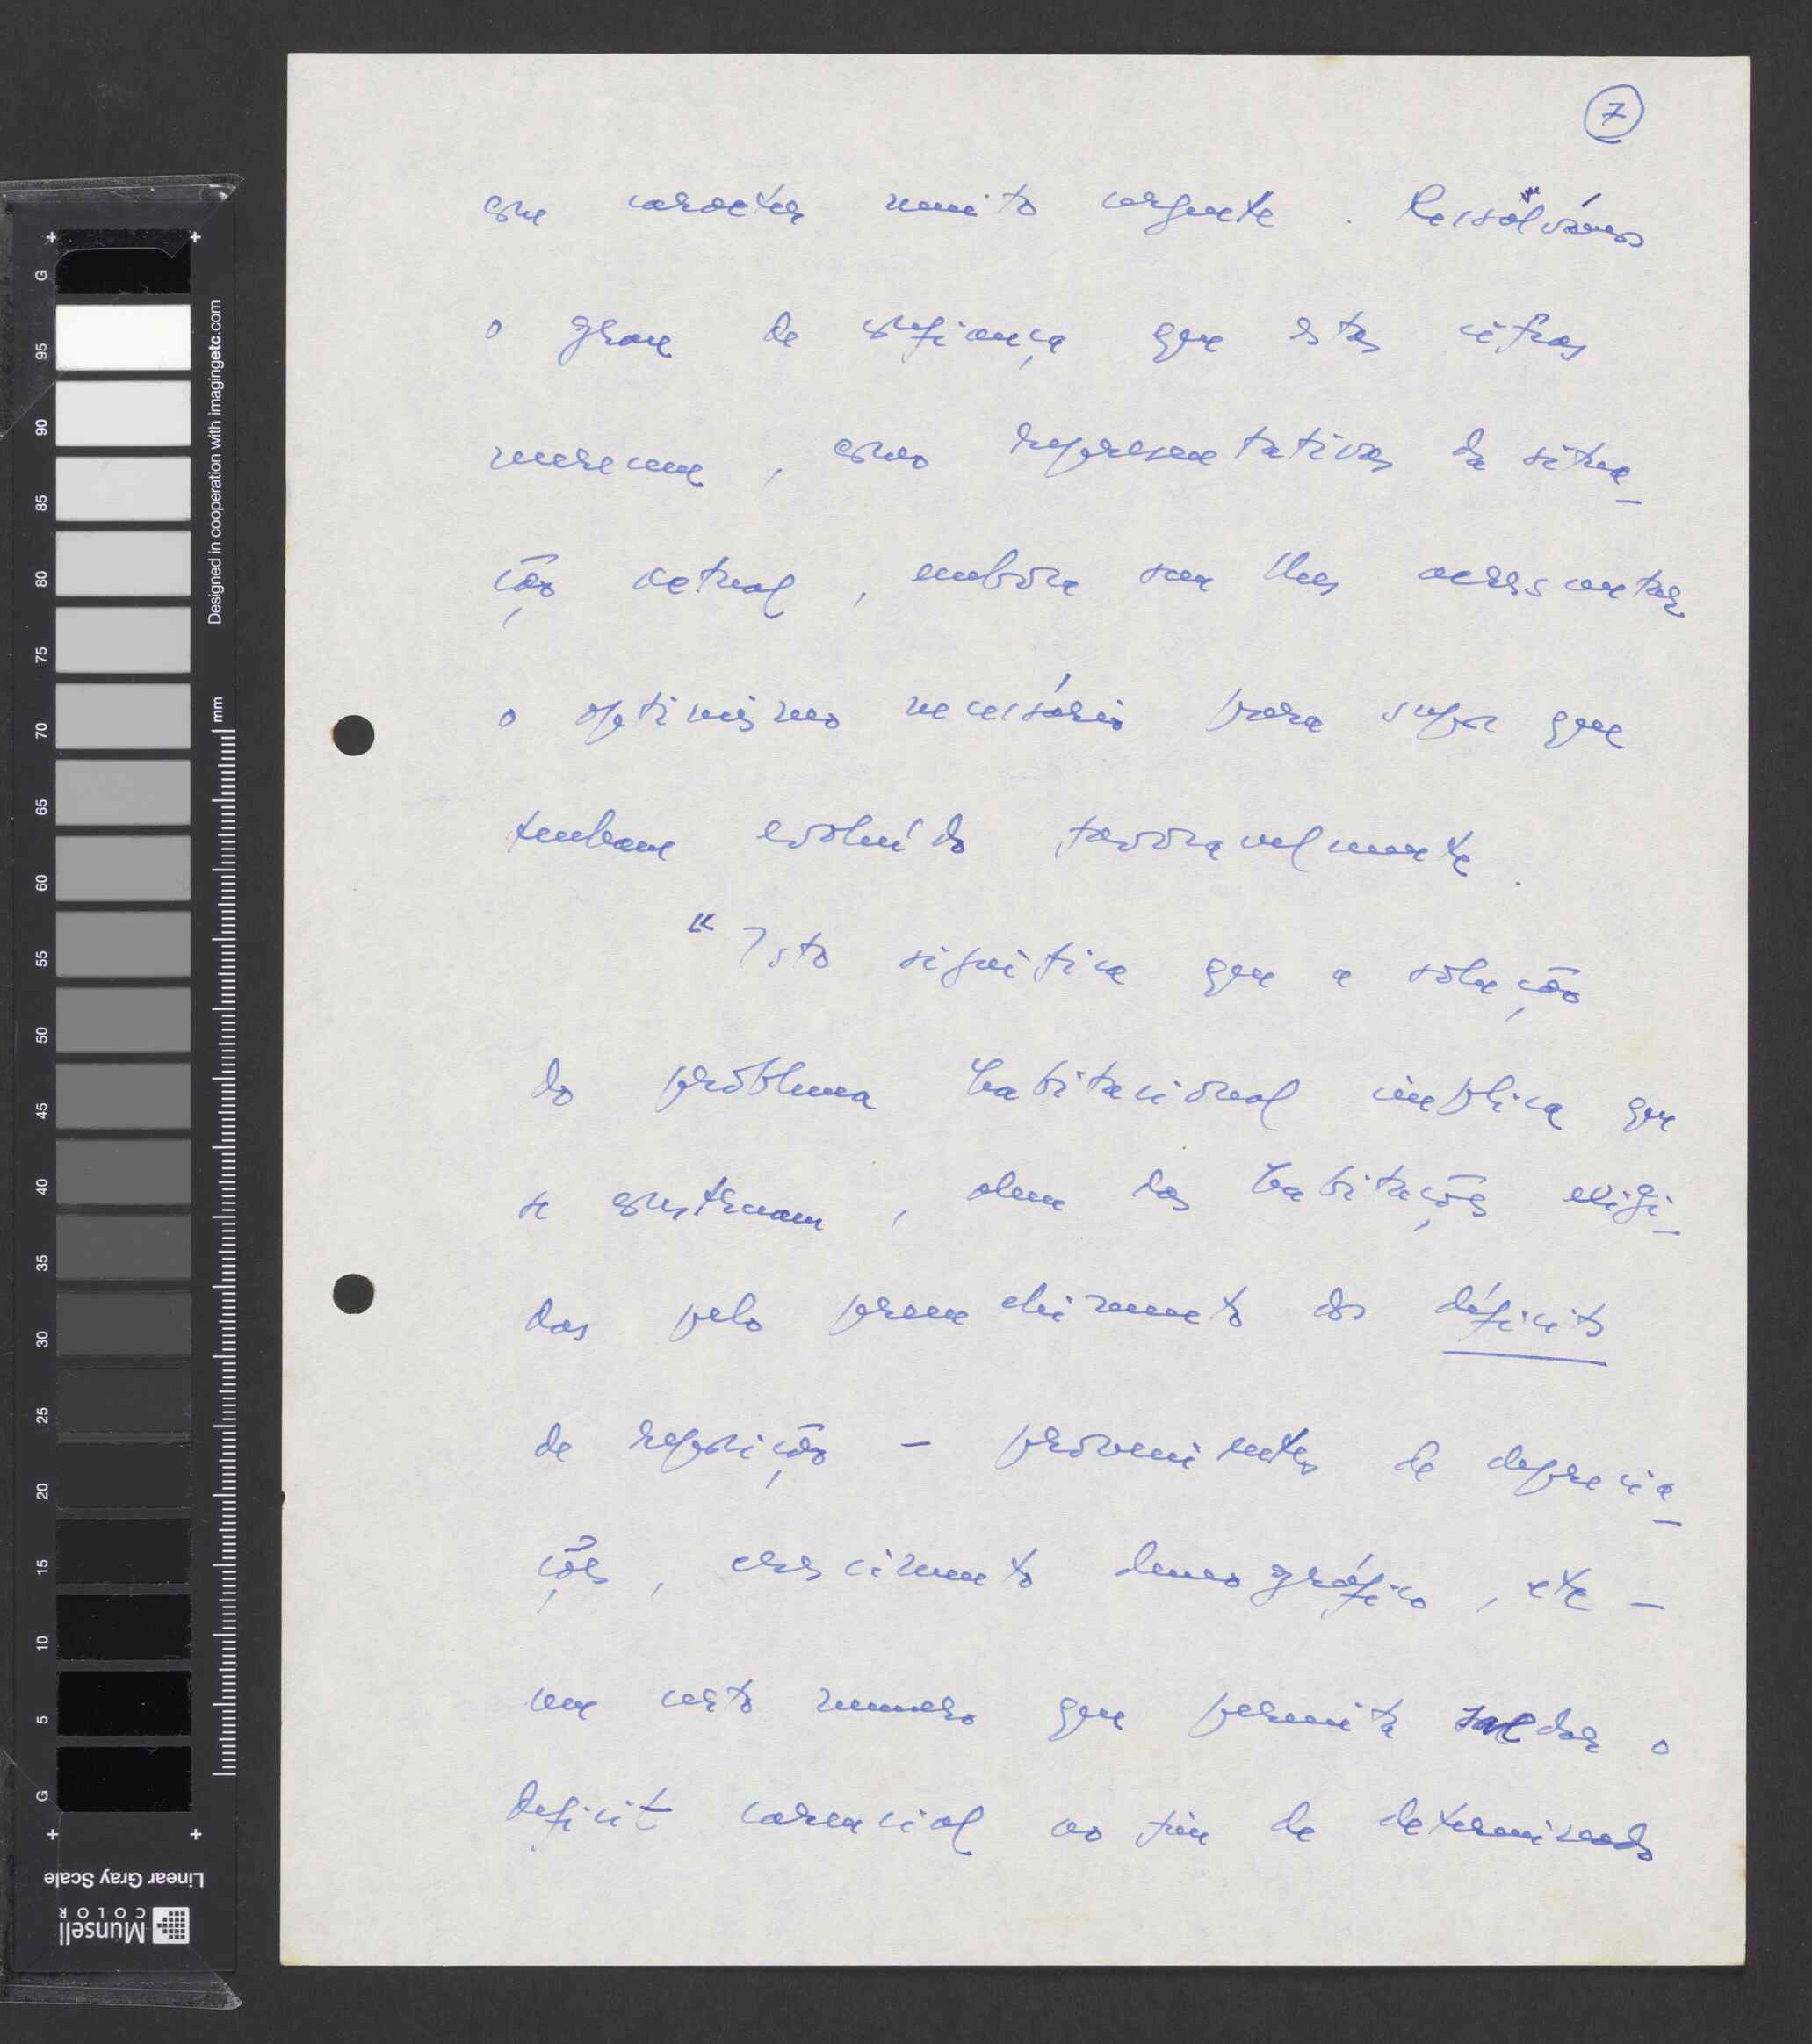 7
com caracter muito urgente. Ressalvamos
o grau de confiança que estas cifras
merecem, como representativas da situa-
ção actual, embora sem lhes acrescentar
o optimismo necessário para supor que
tenham evoluído favoravelmente.
"Isto significa que a solução
do problema habitacional implica que
se construam, alem das habitações exigi-
das pelo preenchimento dos déficits
de reposição - provenientes de deprecia-
ções, crescimento demográfico, etc -
um certo numero que permita saldar o
deficit carencial ao fim de determinado
G
95
90
85
80
75
70
65
60
55
50
45
40
35
30
25
20
15
10
5
G
Designed in cooperation with imagingetc.com
mm
Linear Gray Scale
Munsell
COLOR